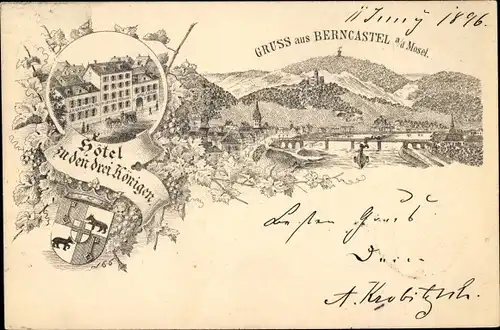 11 Juny 1896.
GRUSS aus BERNCASTEL a/d Mosel.
Hôtel
zu den drei Königen
Besten Gruß
Dein
A. Krobitzsch.